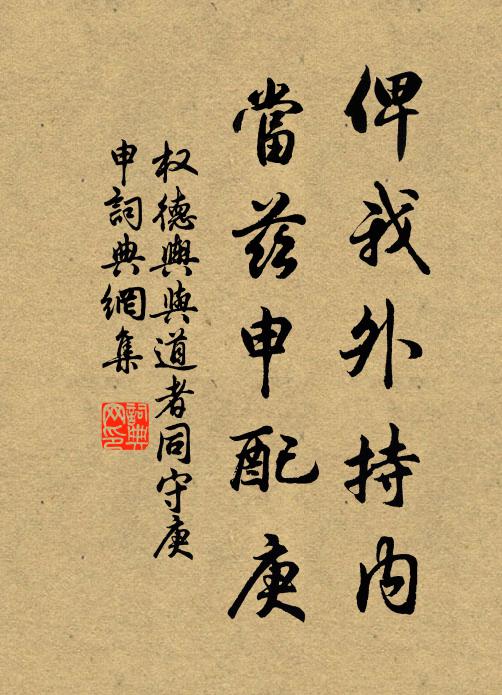 俾我外持內
當茲申配庚
权德輿與道者同守庚
申詞典網集
詞典网印